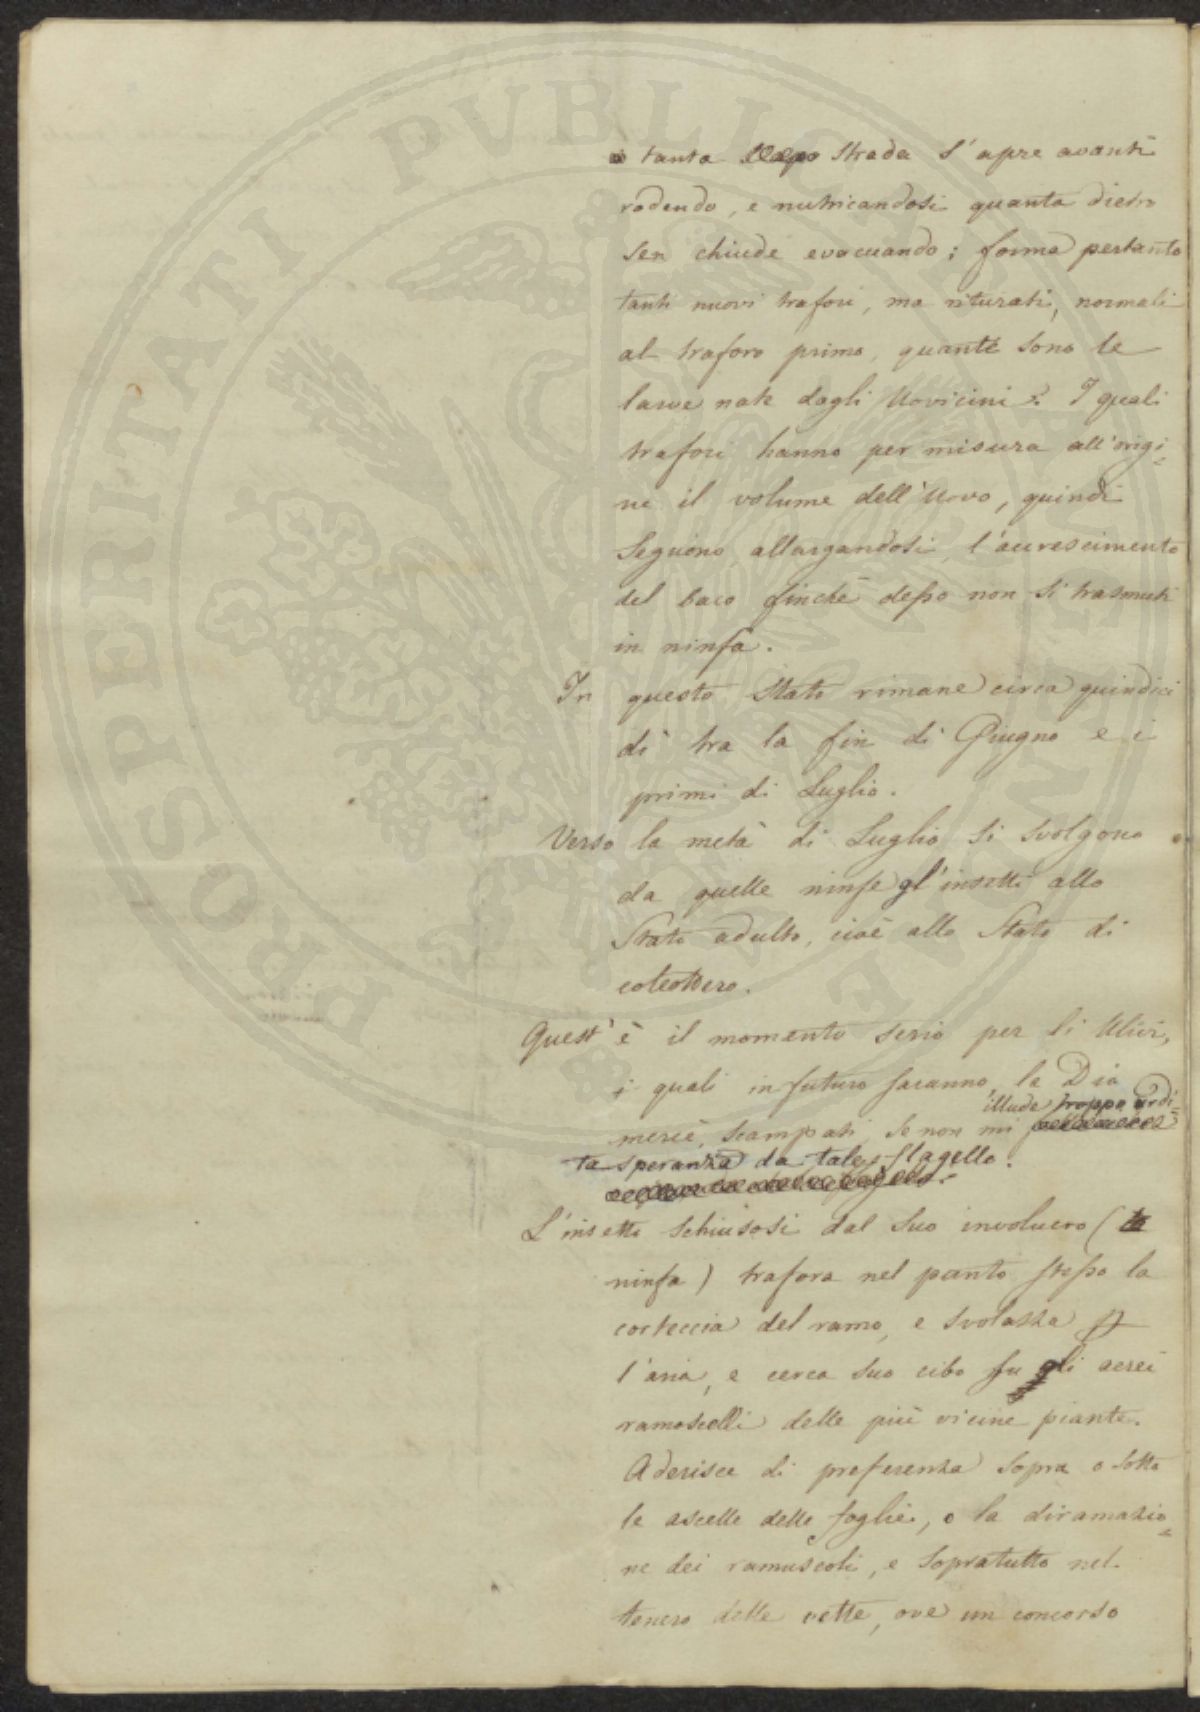 PROSPERITATI PVBLICAE AVGENDAE
o tanta strada s' apre avanti
rodendo, e nutricandosi quanta dietro
sen chiude evacuando; forma pertanto
tanti nuovi trafori, ma riturati, normali
al traforo primo, quante sono le
larve nate dagli Uovicini. I quali
trafori hanno per misura all'origi=
ne il volume dell'Uovo, quindi
seguono, allargandosi, l'accrescimento
del baco finchè desso non si trasmuti
in ninfa.
In questo Stato rimane circa quindici
dì tra la fin di Giugno e i
primi di Luglio.
Verso la metà di Luglio si svolgono
da quelle ninfe gl'insetti allo
Stato adulto, cioè allo Stato di
coleottero.
Quest' è il momento serio per li Ulivi,
i quali in futuro saranno, la Dio
mercè, scampati, se non mi illude troppo ardi=
ta speranza da tale flagello.
L'insetto schiusosi dal suo involucro (la
ninfa) trafora nel punto stesso la
corteccia del ramo, e svolazza p
l'aria, e cerca suo cibo su gli aerei
ramoscelli delle più vicine piante.
Aderisce di preferenza sopra o sotto
le ascelle delle foglie, o la diramazio=
ne dei ramuscoli, e sopratutto nel
tenero delle vette, ove un concorso